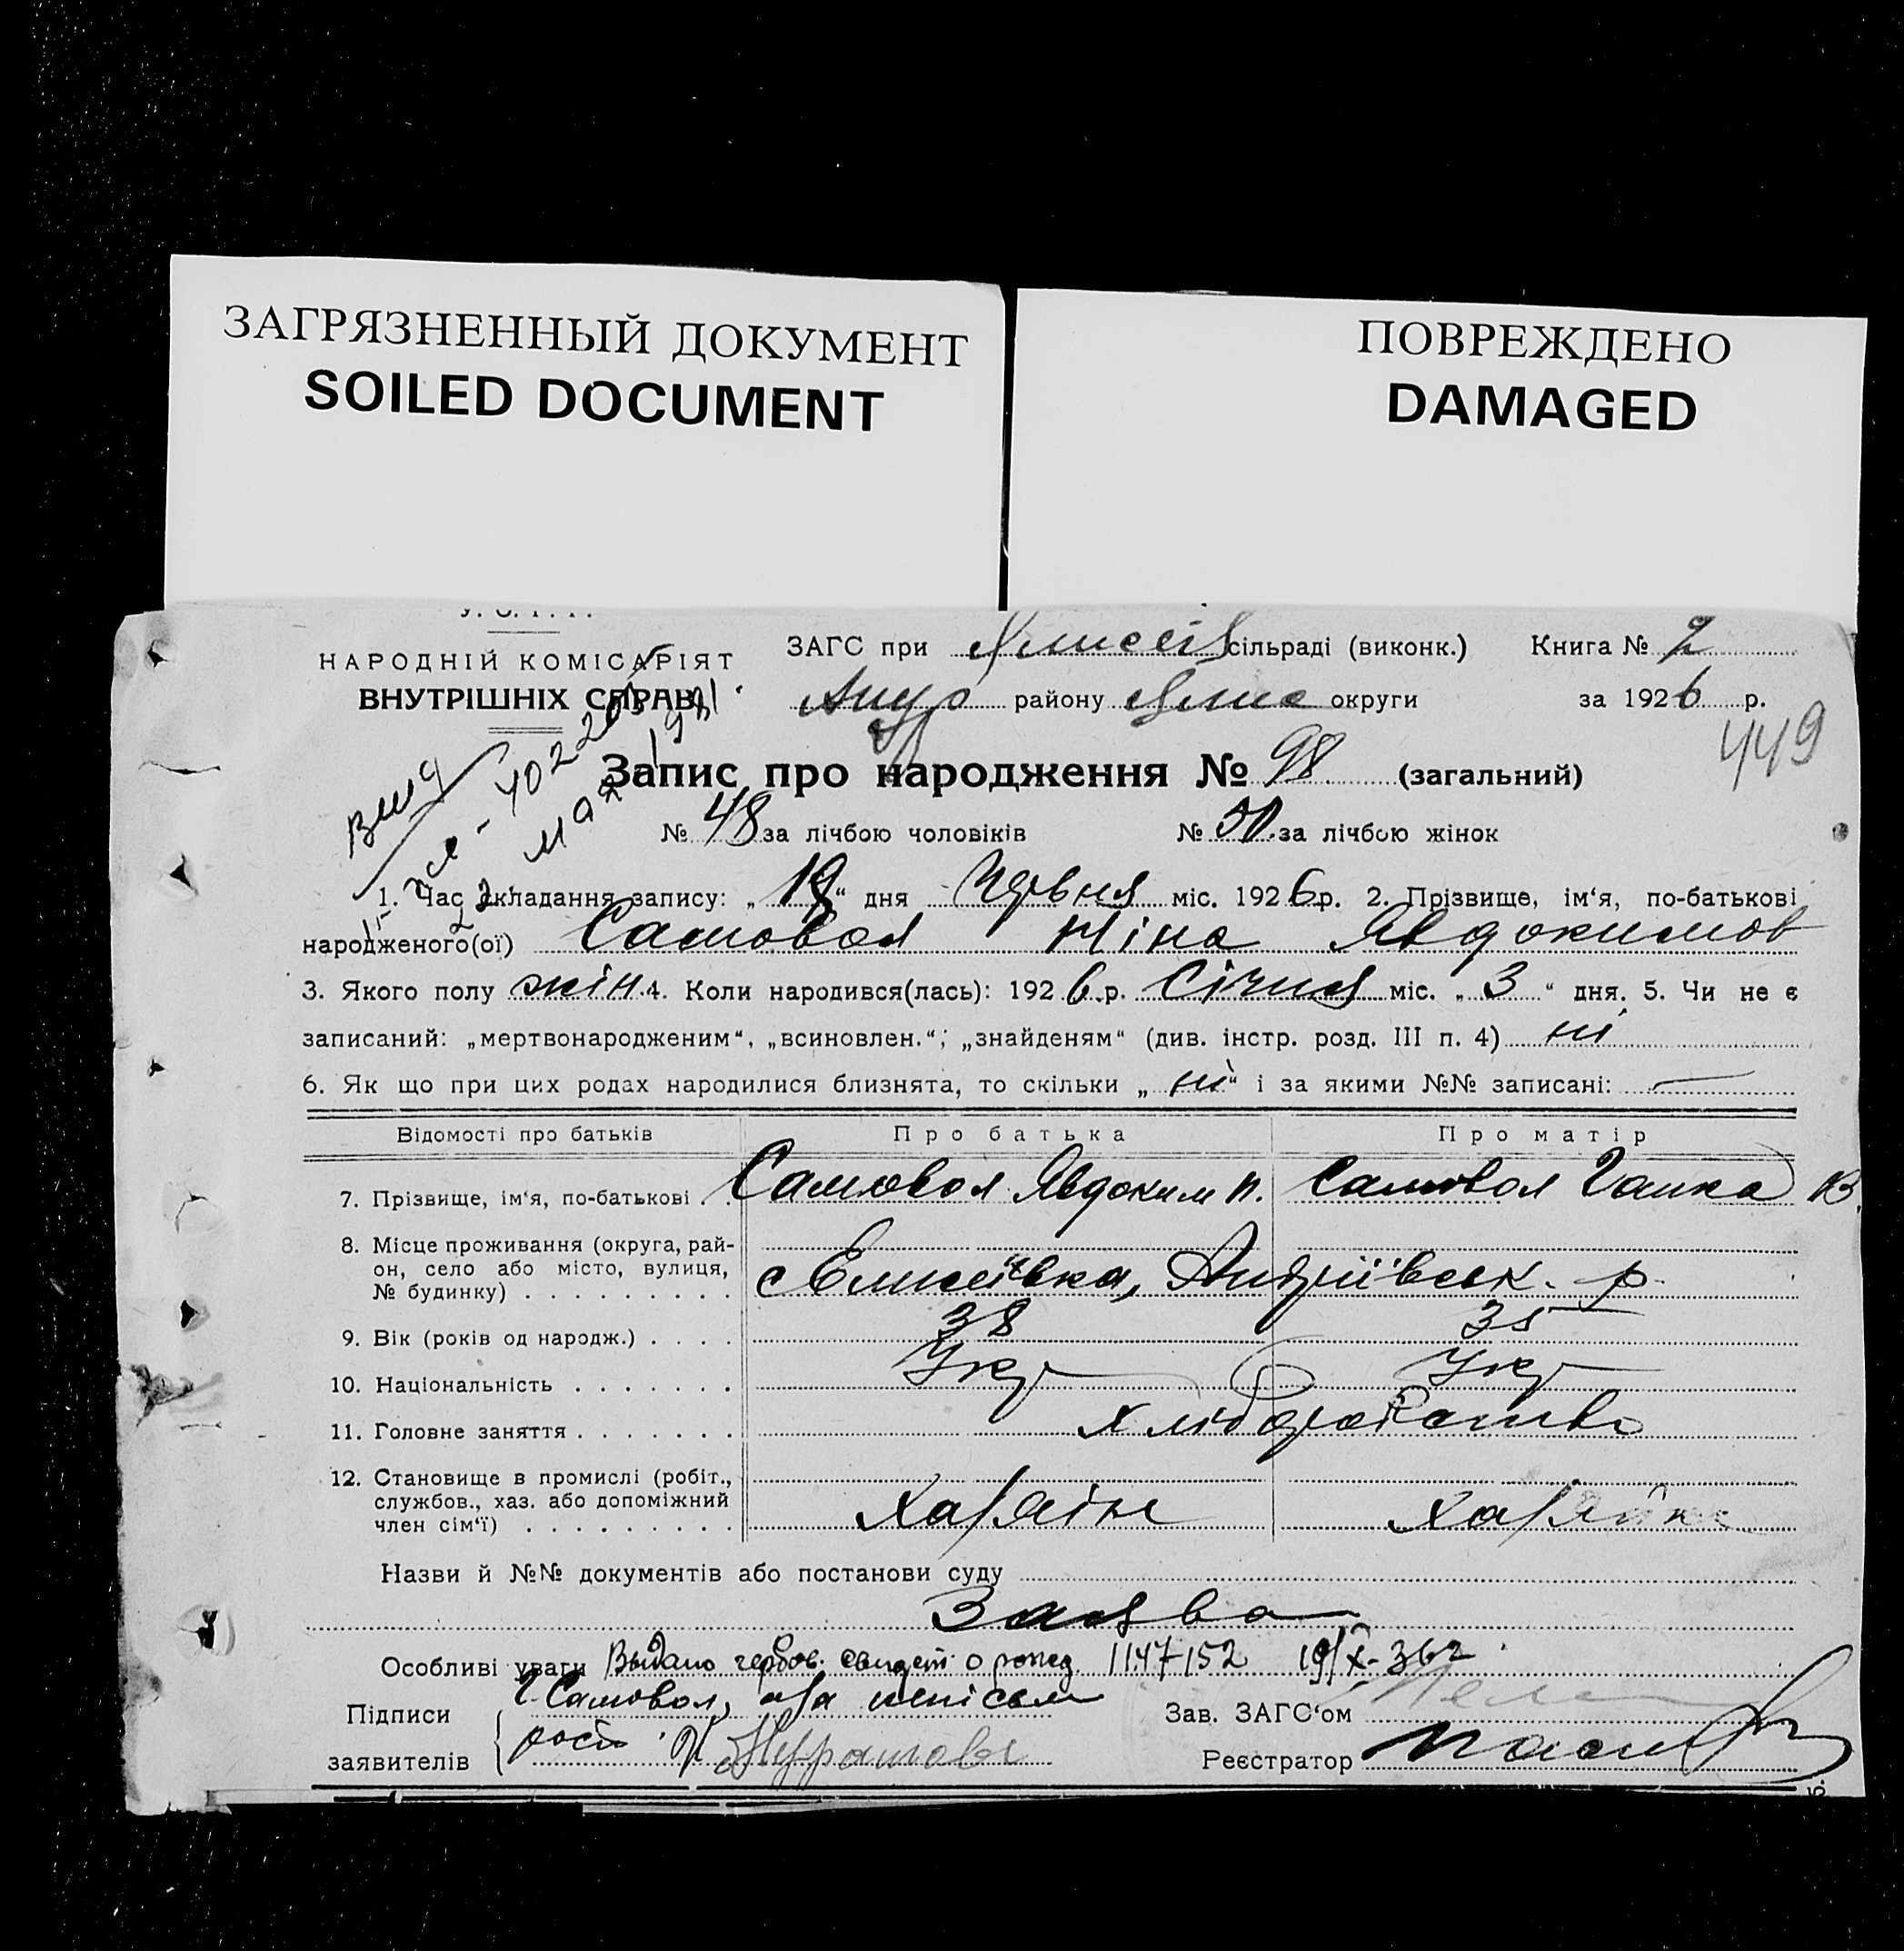 ЗАГРЯЗНЕННЫЙ ДОКУМЕНТ
SOILED DOCUMENT
ПОВРЕЖДЕНО
DAMAGED
НАРОДНІЙ КОМІСАРІЯТ
ВНУТРІШНІХ СПРАВ
ЗАГС при сільраді (виконк.) Книга № 2
району округи за 1926 р.
449
Запис про народження № 98 (загальний)
№ 48 за лічбою чоловіків № 50 за лічбою жінок
1. Час складання запису: „19“ дня Червня міс. 1926 р. 2. Прізвище, ім‘я, по-батькові
народженого(ої) Самовол Ніна Явдокимов
3. Якого полу жін. 4. Коли народився(лась): 1926 р. Січня міс. „3“ дня. 5. Чи не є
записаний: „мертвонародженим“, „всиновлен.“; „знайденям“ (див. інстр. розд. III п. 4) ні
6. Як що при цих родах народилися близнята, то скільки „ні“ і за якими №№ записані: —
Відомості про батьків Про батька Про матір
7. Прізвище, ім‘я, по-батькові . . Самовол Явдоким П. Самовол Ганна В.
8. Місце проживання (округа, рай-
он, село або місто, вулиця,
№ будинку) . . . . . . . . . с Елисеївка, Андріївськ. р.
9. Вік (років од народж.) . . . . 38 35
10. Національність . . . . . . . Укр Укр
11. Головне заняття . . . . . . . Хліборобство
12. Становище в промислі (робіт.,
службов., хаз. або допоміжний
член сім‘ї) . . . . . . . . . Хазяїн Хазяйка
Назви й №№ документів або постанови суду
Заява
Особливі уваги Выдано гербов. свидет. о рожд. 1147152 19/X-36г
Підписи Г. Самовол, а за
заявителів рост.
Зав. ЗАГС‘ом
Реєстратор